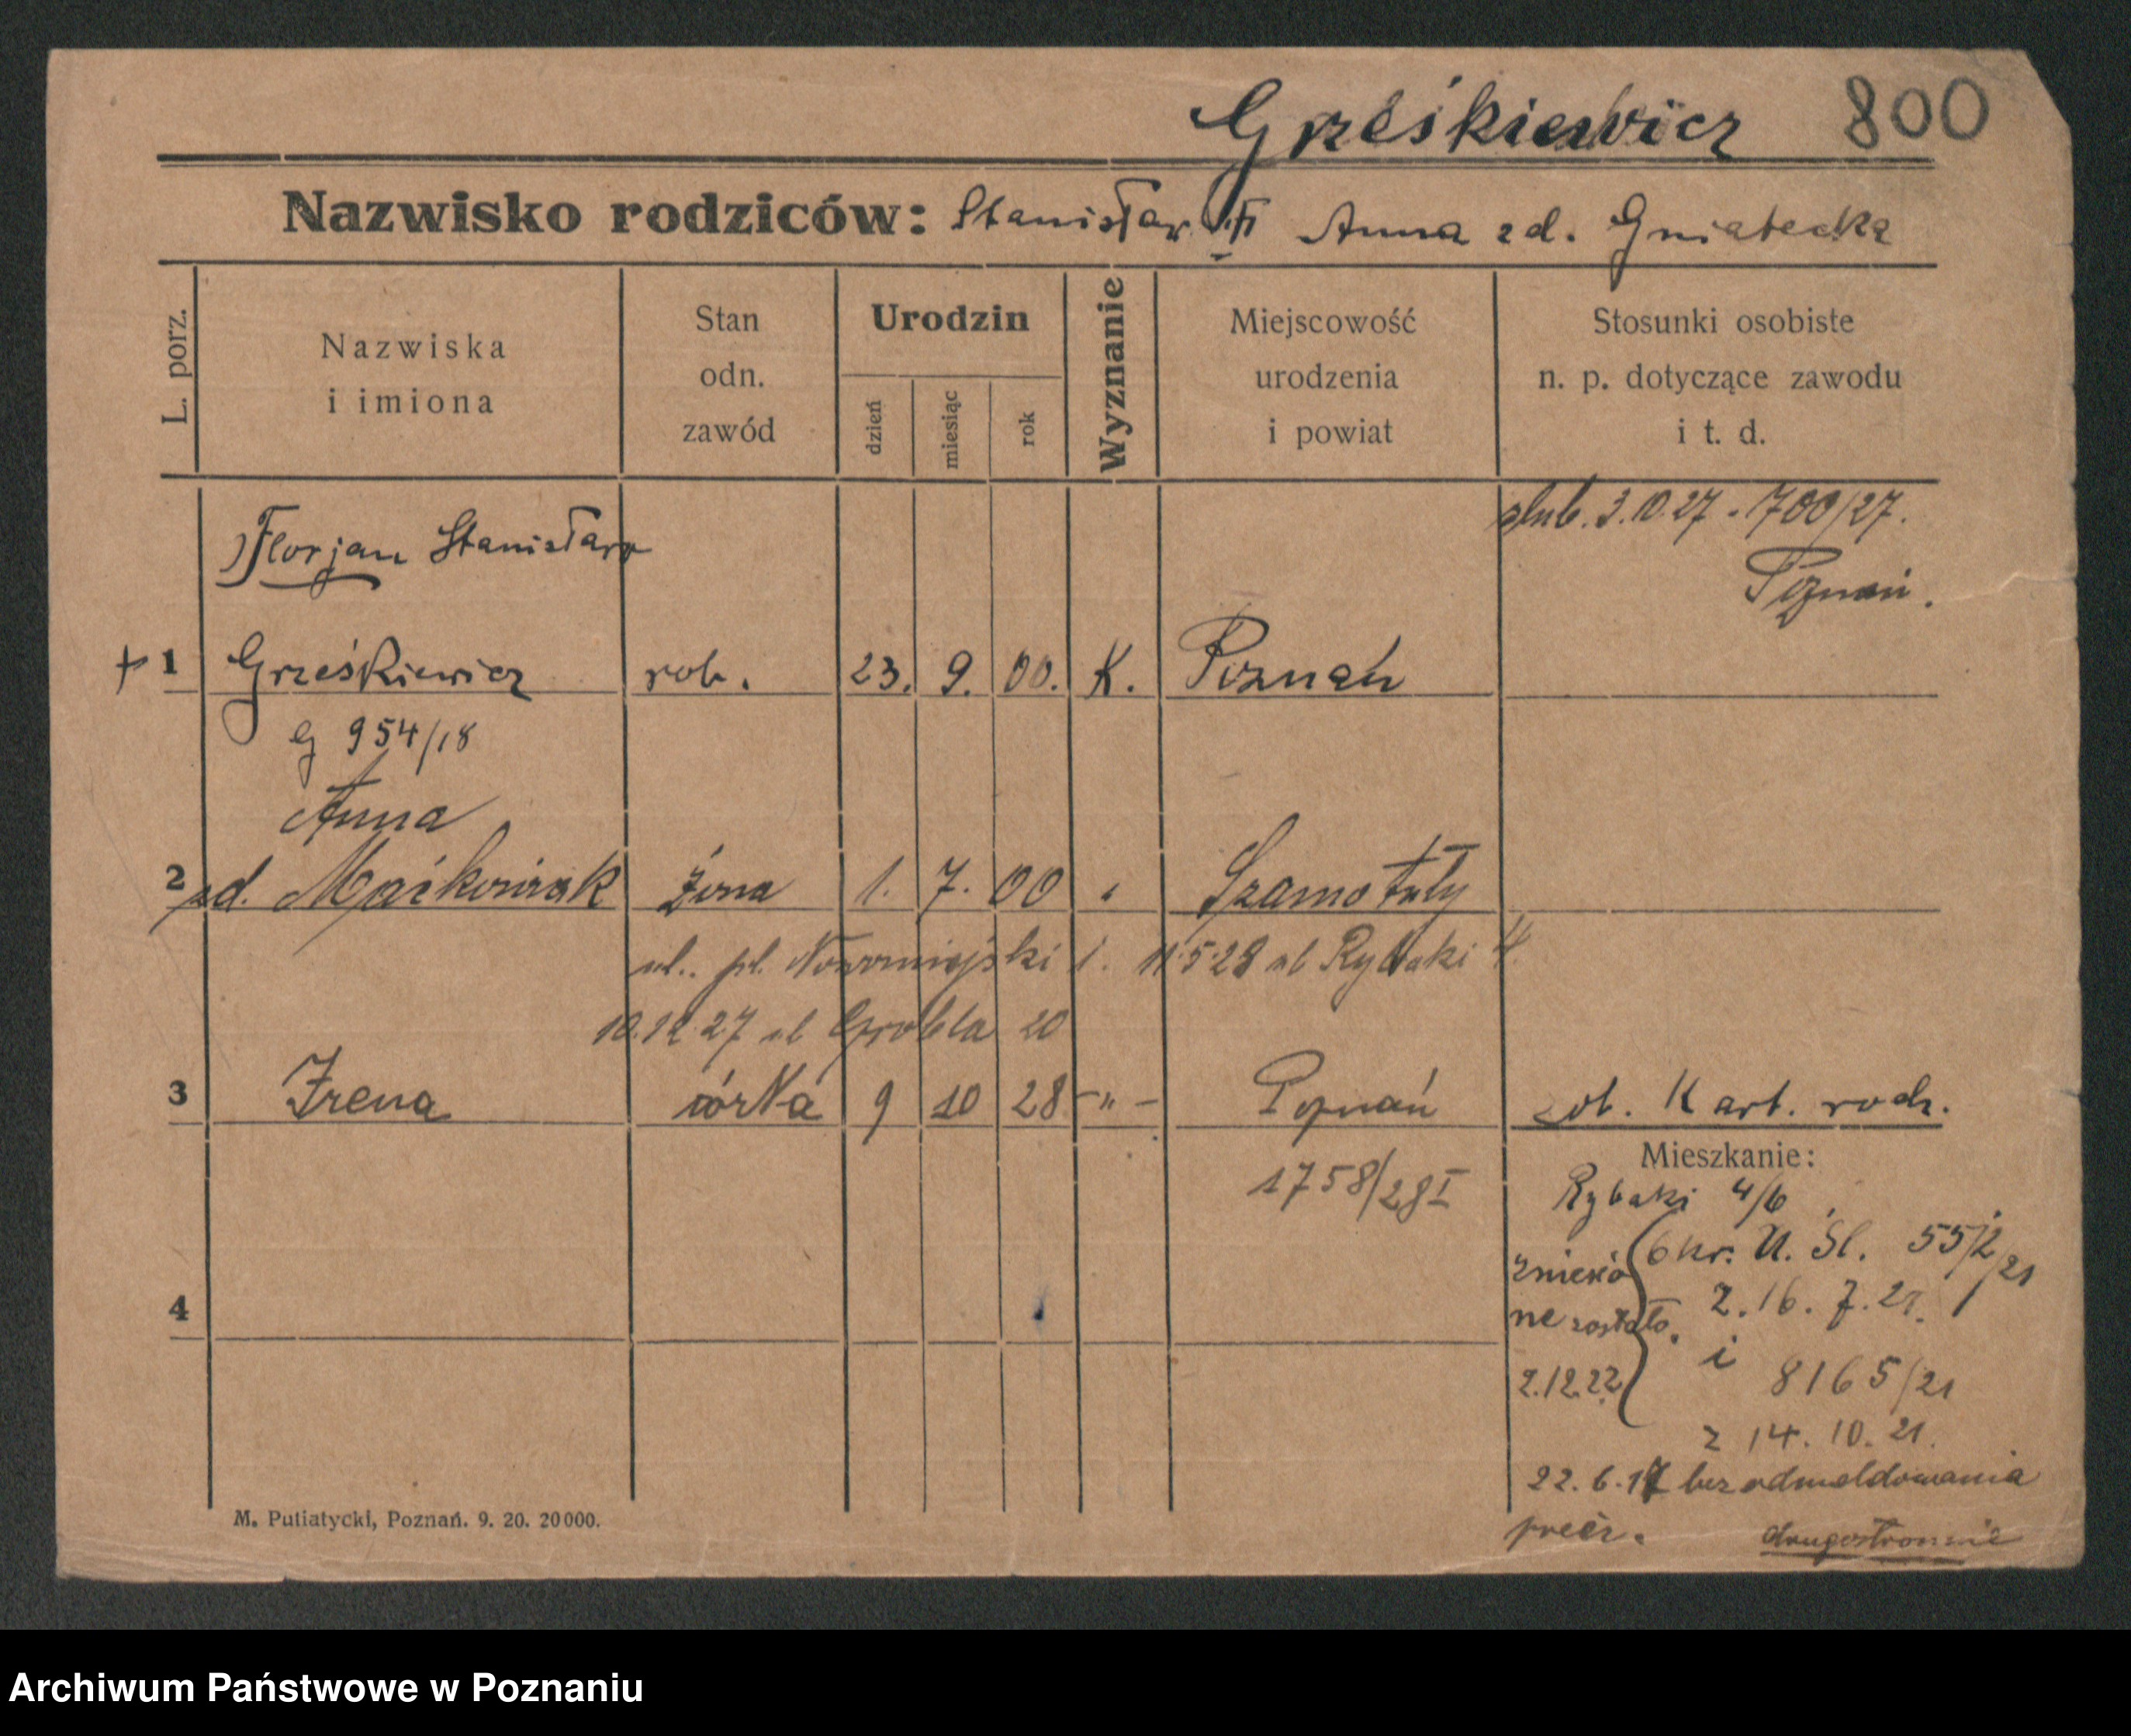 Grześkiewicz 800
Nazwisko rodziców: Stanisław Anna zd. Gniatecka
L. porz.
Nazwiska
i imiona
Stan
odn.
zawód
Urodzin
dzień
miesiąc
rok
Wyznanie
Miejscowość
urodzenia
i powiat
Stosunki osobiste
n. p. dotyczące zawodu
i t. d.
ślub. 3.10.27 - 700/27.
Poznań.
Florjan Stanisław
+ 1 Grześkiewicz rob. 23. 9. 00. K. Poznań
G 954/18
Anna
2 zd. Maćkowiak żona 1. 7. 00 " Szamotuły
ul. pl. Nowomiejski 1. 11.5.28 ul Rybaki 4.
10.12.27 ul Grobla 20
3 Irena córka 9 10 28 -"- Poznań zob. Kart. rodz.
1758/28 I
Mieszkanie:
Rybaki 4/6
6 kr. U. Śl. 55/2/21
zniesio
ne zostało. z. 16. 7. 21.
i
2.12.22 8165/21
z 14. 10. 21.
4
22. 6. bez odmeldowania
drugostronnie
M. Putiatycki, Poznań. 9. 20. 20000.
Archiwum Państwowe w Poznaniu